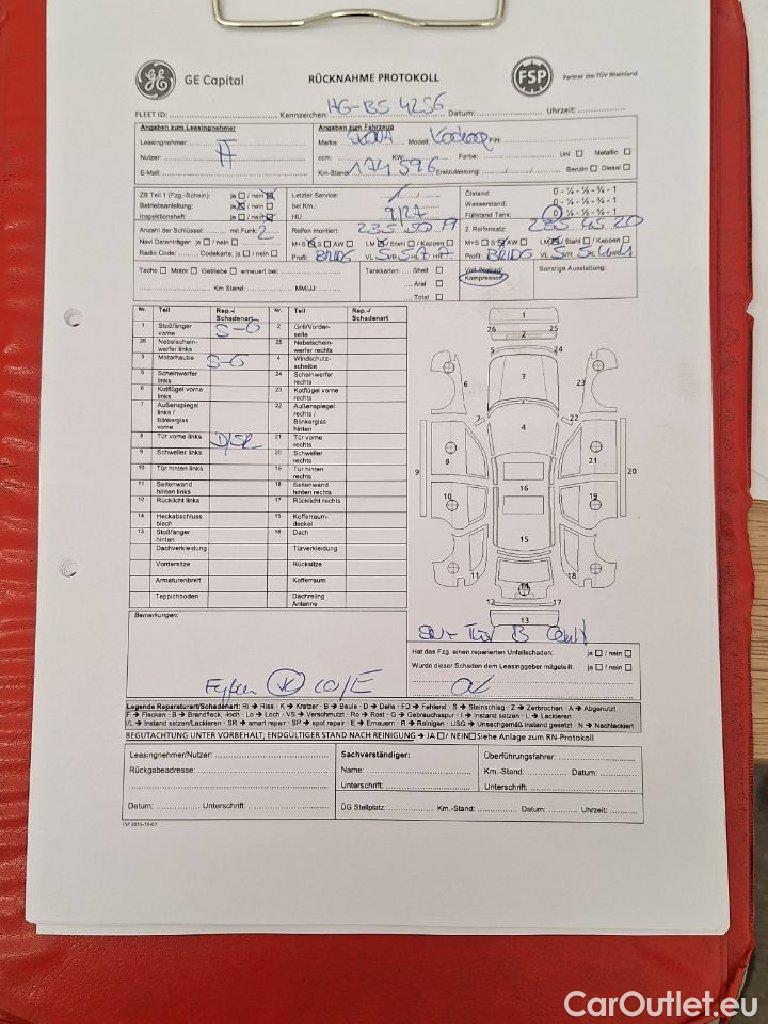 GE Capital RÜCKNAHME PROTOKOLL FSP Partner des TÜV Rheinland
FLEET ID: Kennzeichen: HG-BS 4256 Datum: Uhrzeit:
Angaben zum Leasingnehmer Angaben zum Fahrzeug
Leasingnehmer: Marke: Modell: FIN:
Nutzer: ccm: KW: Farbe: Uni ☐ Metallic ☐
E-Mail: Km-Stand: 174596 Erstzulassung: Benzin ☐ Diesel ☐
ZB Teil 1 (Fzg.-Schein): ja ☐ / nein ☒ Letzter Service: Ölstand: 0 - ¼ - ½ - ¾ - 1
Betriebsanleitung: bei Km.: Wasserstand: 0 - ¼ - ½ - ¾ - 1
Inspektionsheft: HU: 9/27 Füllstand Tank: 0 - ¼ - ½ - ¾ - 1
Anzahl der Schlüssel: mit Funk: 2 Reifen montiert: 235 50 19 2. Reifensatz: 235 45 20
Navi Datenträger: ja ☐ / nein ☐ M+S ☒ S ☐ AW ☐ LM ☒ / Stahl ☐ / Kappen ☐ M+S ☐ S ☒ AW ☐ LM ☒ / Stahl ☐ / Kappen ☐
Radio Code: Codekarte, ja ☐ / nein ☐ Profil: BRIDG VL 5 VR 5 HL 7 HR 7 Profil: BRIDG VL 5 VR 5 HL 4 HR 4
Tacho ☐ Motor ☐ Getriebe ☐ erneuert bei: Tankkarten: Shell ☐ Sonstige Ausstattung:
Aral ☐ Kompressor
Km Stand: MM/JJ: Total ☐
Nr. Teil Rep.-/ Schadenart Nr. Teil Rep.-/ Schadenart
1 Stoßfänger vorne S-G 2 Grill/Vorderseite
26 Nebelscheinwerfer links 25 Nebelscheinwerfer rechts
3 Motorhaube S-G 4 Windschutzscheibe
5 Scheinwerfer links 24 Scheinwerfer rechts
6 Kotflügel vorne links 23 Kotflügel vorne rechts
7 Außenspiegel links / Blinkerglas vorne 22 Außenspiegel rechts / Blinkerglas hinten
8 Tür vorne links D/SR 21 Tür vorne rechts
9 Schweller links 20 Schweller rechts
10 Tür hinten links 19 Tür hinten rechts
11 Seitenwand hinten links 18 Seitenwand hinten rechts
12 Rücklicht links 17 Rücklicht rechts
14 Heckabschlussblech 15 Kofferraumdeckel
13 Stoßfänger hinten 16 Dach
Dachverkleidung Türverkleidung
Vordersitze Rücksitze
Armaturenbrett Kofferraum
Teppichboden Dachreling Antenne
1
26 2 25
5 24
3
6 23
7 22
4
8 21
9 20
16
10 19
15
11 18
14
12 17
13
Bemerkungen:
Hat das Fzg. einen reparierten Unfallschaden: ja ☐ / nein ☐
Wurde dieser Schaden dem Leasinggeber mitgeteilt: ja ☐ / nein ☐
Legende Reparaturart/Schadenart: RI → Riss - K → Kratzer - BI → Beule - D → Delle - FD → Fehlend - S → Steinschlag - Z → Zerbrochen - A → Abgenutzt
F → Flecken - B → Brandfleck, -loch - Lo → Loch - VS → Verschmutzt - Ro → Rost - G → Gebrauchsspur - I → Instand setzen - L → Lackieren
I/L → Instand setzen/Lackieren - SR → smart repair - SP → spot repair - E → Erneuern - R → Reinigen - USG → Unsachgemäß instand gesetzt - N → Nachlackiert
BEGUTACHTUNG UNTER VORBEHALT; ENDGÜLTIGER STAND NACH REINIGUNG → JA ☐ / NEIN ☐ Siehe Anlage zum RN-Protokoll
Leasingnehmer/Nutzer: Sachverständiger: Überführungsfahrer:
Rückgabeadresse: Name: Km.-Stand: Datum:
Unterschrift: Unterschrift:
Datum: Unterschrift: ÜG Stellplatz: Km.-Stand: Datum: Uhrzeit:
CarOutlet.eu